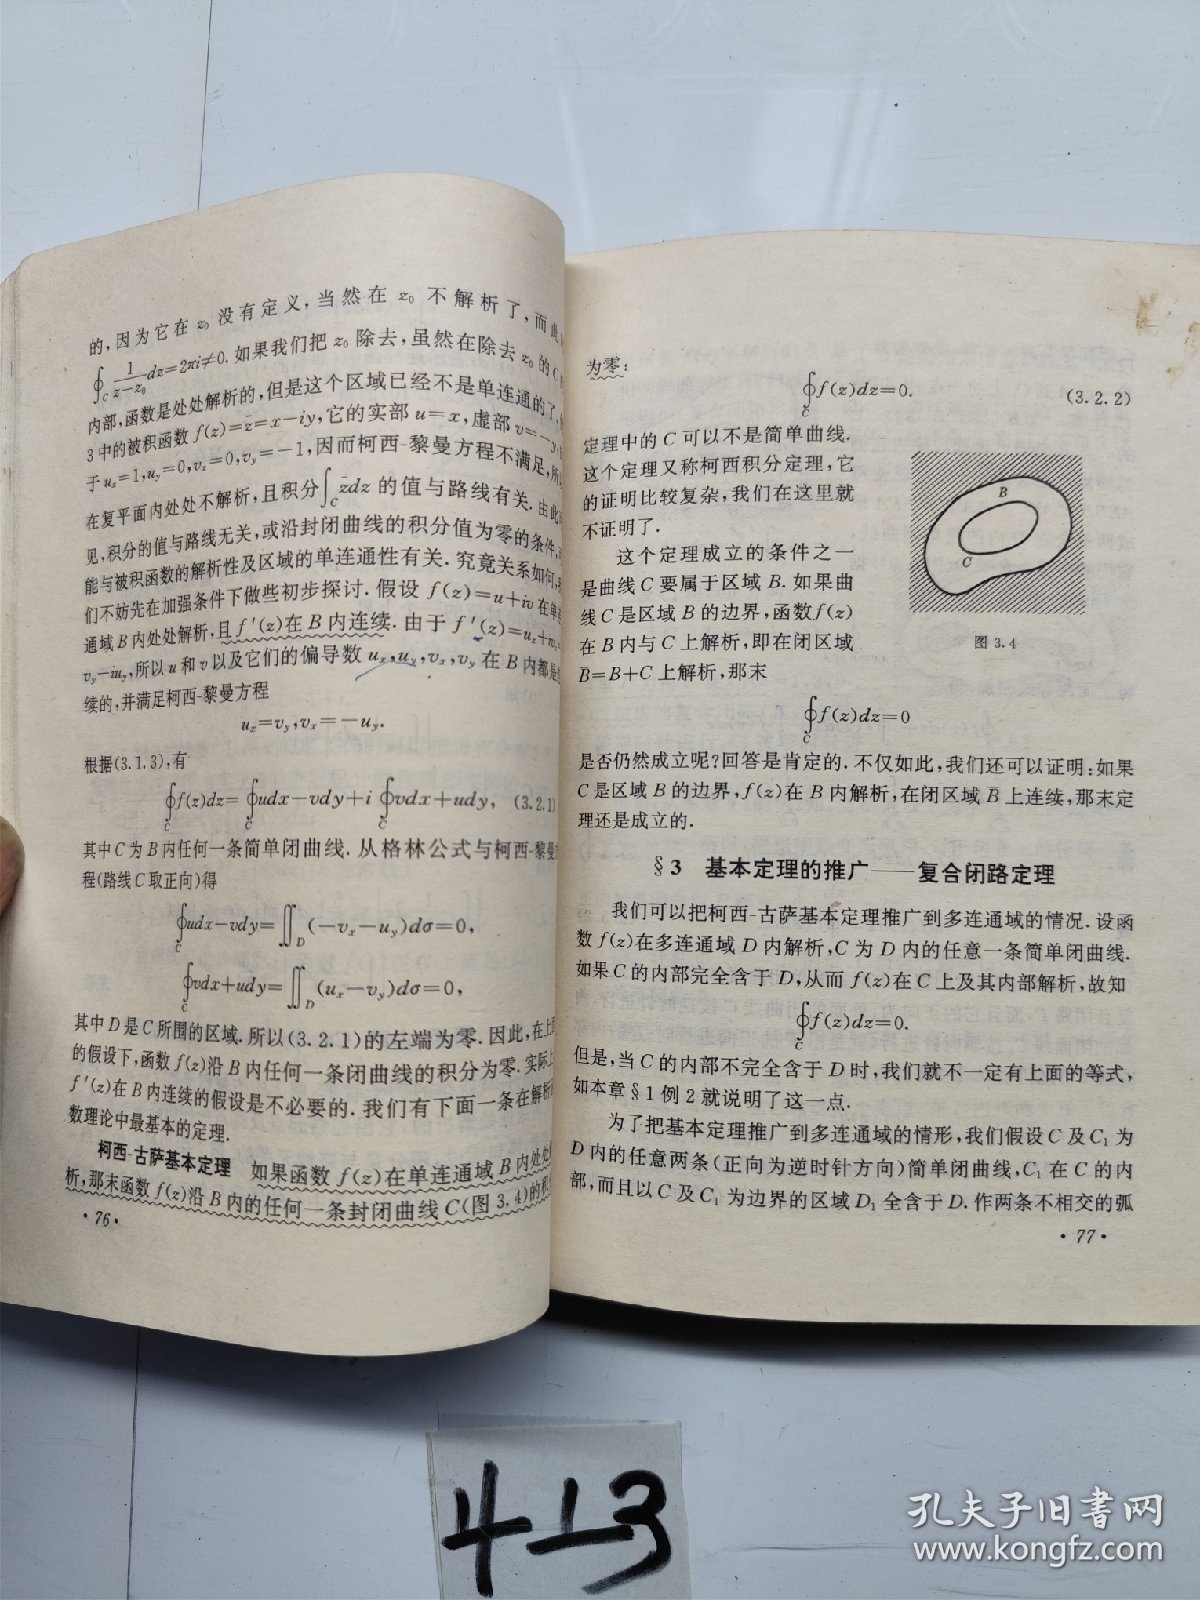 的,因为它在 z₀ 没有定义,当然在 z₀ 不解析了,而此
∮_C 1/(z−z₀) dz=2πi≠0.如果我们把 z₀ 除去,虽然在除去 z₀ 的 C
内部,函数是处处解析的,但是这个区域已经不是单连通的了,
3中的被积函数 f(z)=z̄=x−iy,它的实部 u=x,虚部 v=−y,
于 uₓ=1,u_y=0,vₓ=0,v_y=−1,因而柯西-黎曼方程不满足,所
在复平面内处处不解析,且积分∫_C z̄dz 的值与路线有关.由此
见,积分的值与路线无关,或沿封闭曲线的积分值为零的条件,
能与被积函数的解析性及区域的单连通性有关.究竟关系如何,
们不妨先在加强条件下做些初步探讨.假设 f(z)=u+iv 在单
通域 B 内处处解析,且 f′(z)在 B 内连续.由于 f′(z)=uₓ+ivₓ=
v_y−iu_y,所以 u 和 v 以及它们的偏导数 uₓ,u_y,vₓ,v_y 在 B 内都是
续的,并满足柯西-黎曼方程
uₓ=v_y,vₓ=−u_y.
根据(3.1.3),有
∮_C f(z)dz=∮_C udx−vdy+i∮_C vdx+udy, (3.2.1)
其中 C 为 B 内任何一条简单闭曲线.从格林公式与柯西-黎曼
程(路线 C 取正向)得
∮_C udx−vdy=∬_D (−vₓ−u_y)dσ=0,
∮_C vdx+udy=∬_D (uₓ−v_y)dσ=0,
其中 D 是 C 所围的区域.所以(3.2.1)的左端为零.因此,在上
的假设下,函数 f(z)沿 B 内任何一条闭曲线的积分为零.实际
f′(z)在 B 内连续的假设是不必要的.我们有下面一条在解析
数理论中最基本的定理.
柯西-古萨基本定理 如果函数 f(z)在单连通域 B 内处处
析,那末函数 f(z)沿 B 内的任何一条封闭曲线 C(图 3.4)的
·76·
为零:
∮_C f(z)dz=0. (3.2.2)
定理中的 C 可以不是简单曲线.
这个定理又称柯西积分定理,它
的证明比较复杂,我们在这里就
不证明了.
这个定理成立的条件之一
是曲线 C 要属于区域 B.如果曲
线 C 是区域 B 的边界,函数 f(z)
在 B 内与 C 上解析,即在闭区域
B̄=B+C 上解析,那末
B
C
图 3.4
∮_C f(z)dz=0
是否仍然成立呢?回答是肯定的.不仅如此,我们还可以证明:如果
C 是区域 B 的边界,f(z)在 B 内解析,在闭区域 B̄ 上连续,那末定
理还是成立的.
§3 基本定理的推广——复合闭路定理
我们可以把柯西-古萨基本定理推广到多连通域的情况.设函
数 f(z)在多连通域 D 内解析,C 为 D 内的任意一条简单闭曲线.
如果 C 的内部完全含于 D,从而 f(z)在 C 上及其内部解析,故知
∮_C f(z)dz=0.
但是,当 C 的内部不完全含于 D 时,我们就不一定有上面的等式,
如本章§1例2就说明了这一点.
为了把基本定理推广到多连通域的情形,我们假设 C 及 C₁ 为
D 内的任意两条(正向为逆时针方向)简单闭曲线,C₁ 在 C 的内
部,而且以 C 及 C₁ 为边界的区域 D₁ 全含于 D.作两条不相交的弧
·77·
4-13
孔夫子旧书网
www.kongfz.com